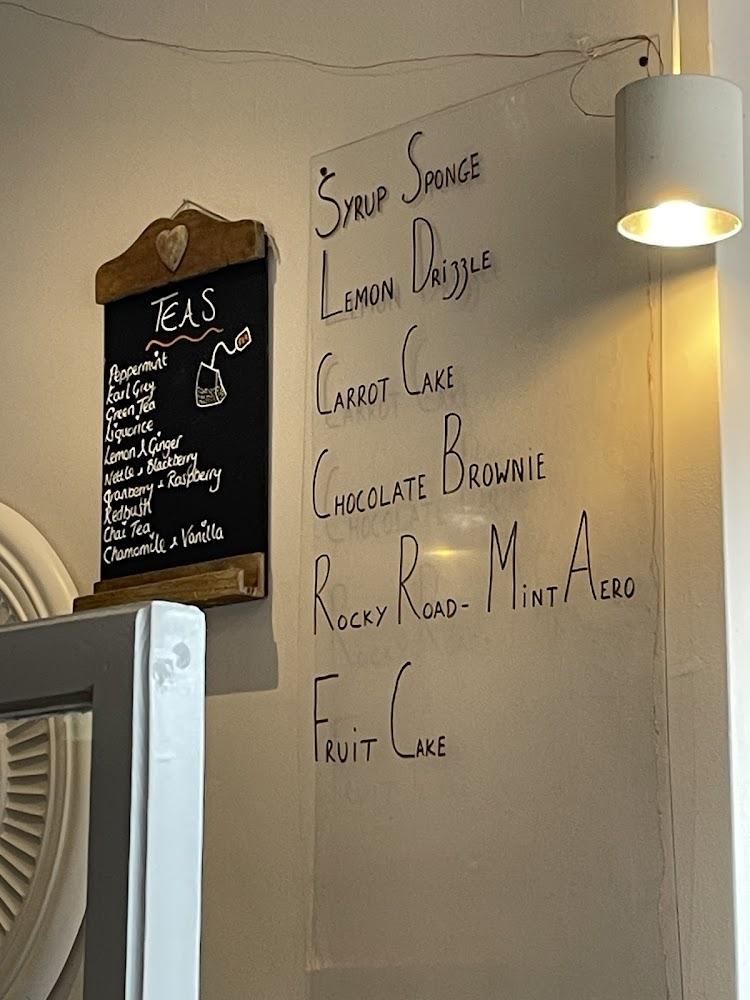 TEAS
Peppermint
Earl Grey
Green Tea
Liquorice
Lemon & Ginger
Nettle & Blackberry
Cranberry & Raspberry
Redbush
Chai Tea
Chamomile & Vanilla
SYRUP SPONGE
LEMON DRIZZLE
CARROT CAKE
CHOCOLATE BROWNIE
ROCKY ROAD- MINT AERO
FRUIT CAKE